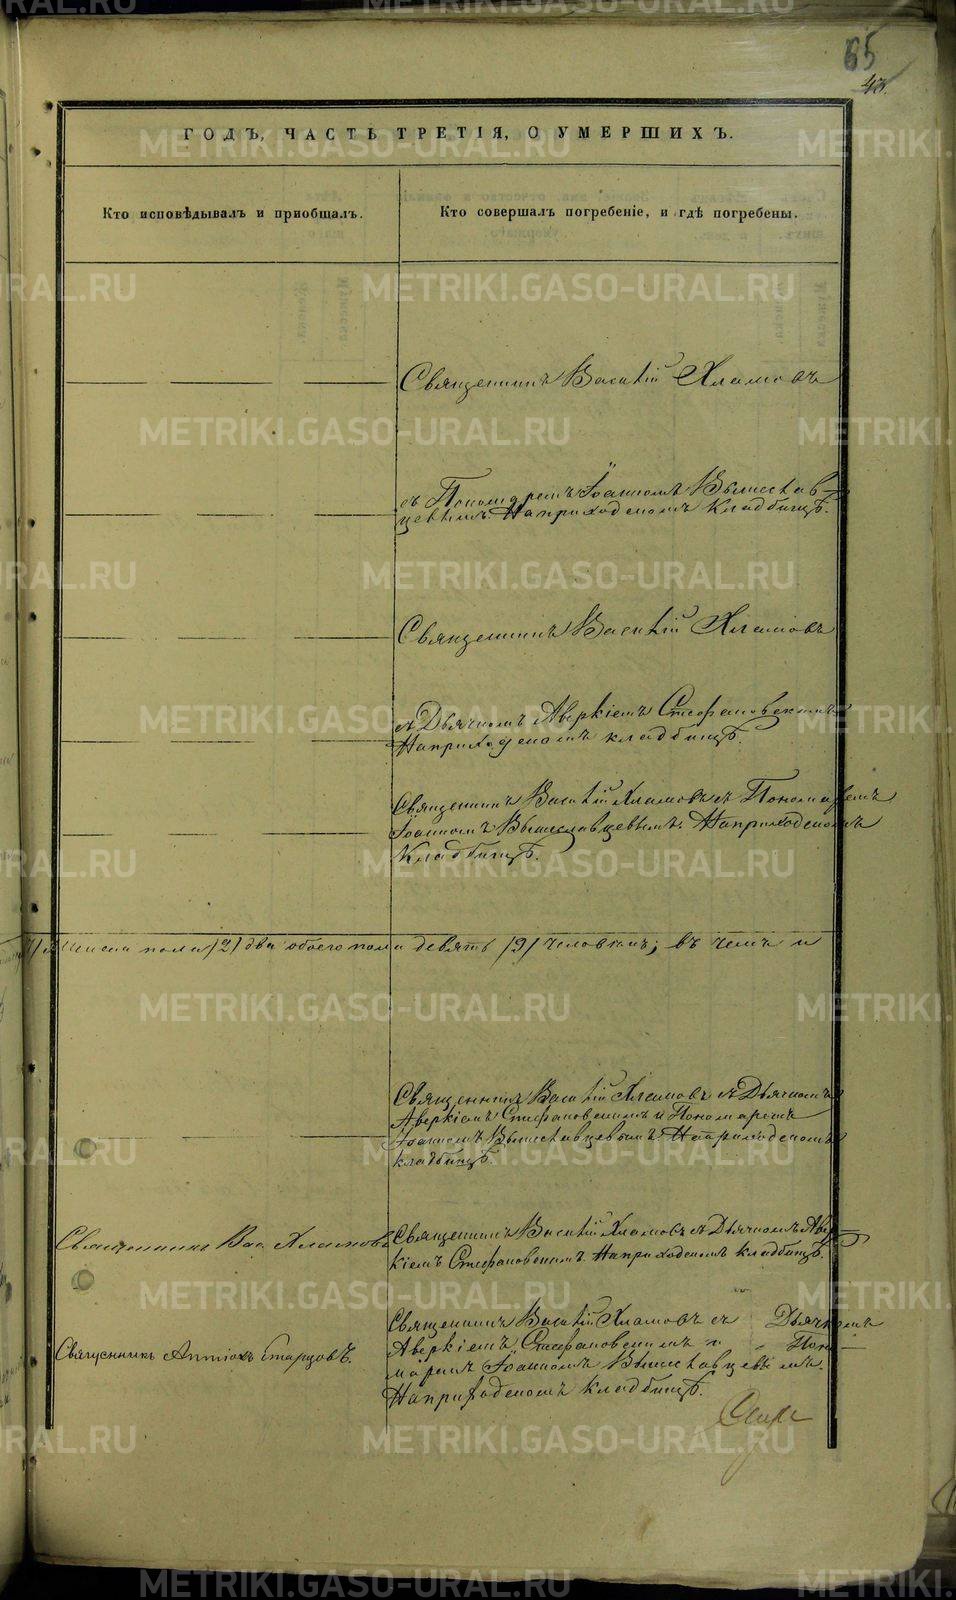 65
43.
ГОДЪ, ЧАСТЬ ТРЕТІЯ, О УМЕРШИХЪ.
Кто исповѣдывалъ и пріобщалъ.
Кто совершалъ погребеніе, и гдѣ погребены.
Священникъ Василій Хламовъ
съ Пономаремъ Іоанномъ Вышеслав-
цевымъ. На приходскомъ кладбищѣ.
Священникъ Василій Хламовъ
съ Дьячкомъ Аверкіемъ Стефановскимъ
На приходскомъ кладбищѣ.
Священникъ Василій Хламовъ съ Пономаремъ
Іоанномъ Вышеславцевымъ. На приходскомъ
Кладбищѣ.
пола /2/ два обоего пола девять /9/ человѣкъ; въ томъ и
Священникъ Василій Хламовъ съ Дьячкомъ
Аверкіемъ Стефановскимъ и Пономаремъ
Іоанномъ Вышеславцевымъ. На приходскомъ
кладбищѣ.
Священникъ Вас. Хламовъ
Священникъ Василій Хламовъ съ Дьячкомъ Авер-
кіемъ Стефановскимъ. На приходскомъ кладбищѣ.
Священникъ Антіохъ Старцовъ.
Священникъ Василій Хламовъ съ Дьячкомъ
Аверкіемъ Стефановскимъ и Поно-
маремъ Іоанномъ Вышеславцевымъ.
На приходскомъ кладбищѣ.
METRIKI.GASO-URAL.RU